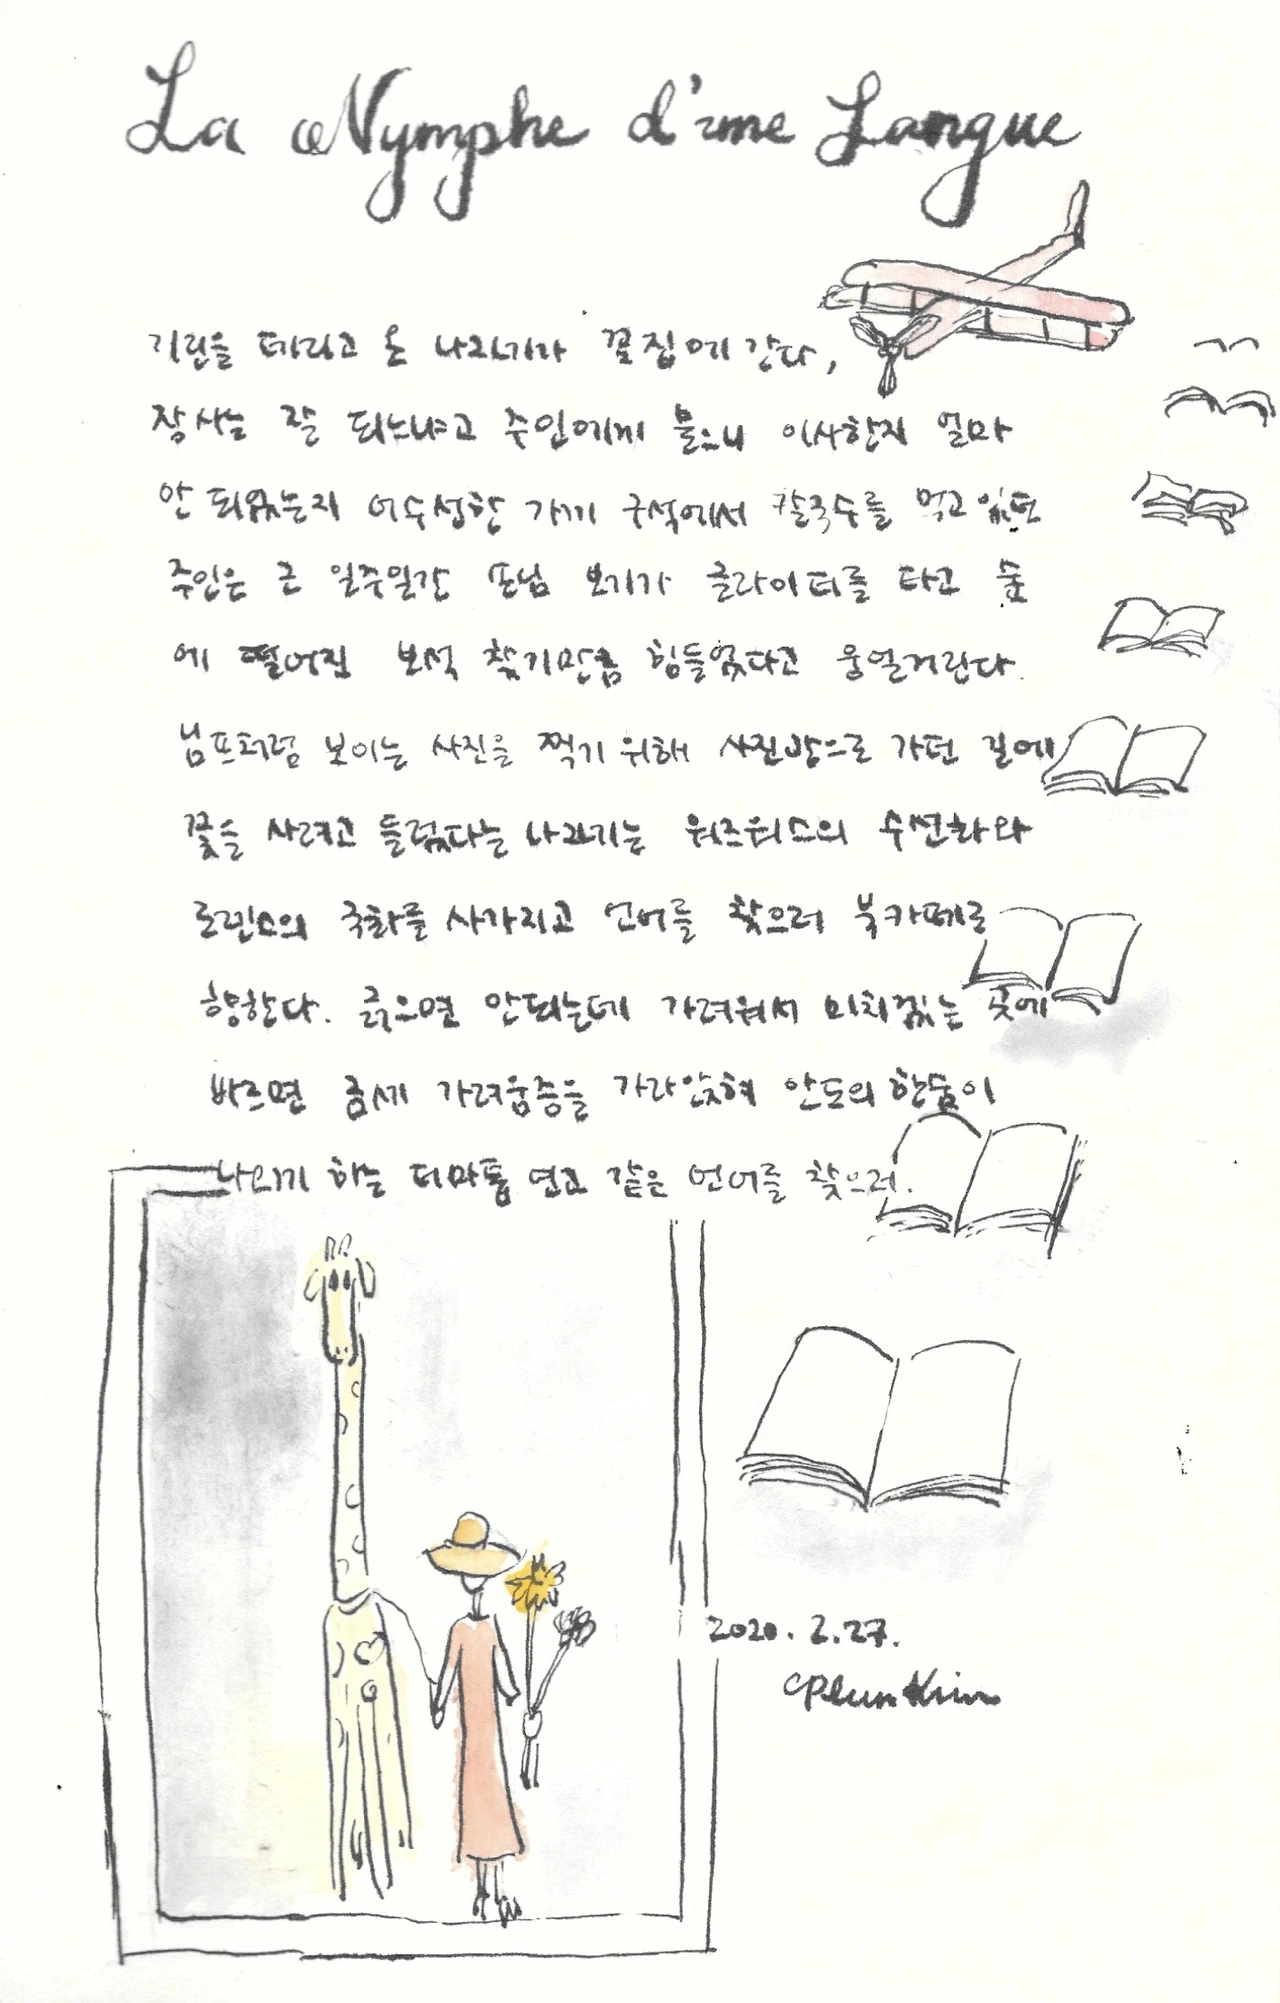 La Nymphe d'une Langue
기린을 데리고 온 나그네가 꽃집에 간다,
장사는 잘 되느냐고 주인에게 물으니 이사한지 얼마
안 되었는지 어수선한 가게 구석에서 칼국수를 먹고 있던
주인은 근 일주일간 손님 보기가 글라이더를 타고 숲
에 떨어진 보석 찾기만큼 힘들었다고 웅얼거린다.
님프처럼 보이는 사진을 찍기 위해 사진방으로 가던 길에
꽃을 사려고 들렀다는 나그네는 워즈워스의 수선화와
로렌스의 국화를 사가지고 언어를 찾으러 북카페로
향한다. 긁으면 안되는데 가려워서 미치겠는 곳에
바르면 금세 가려움증을 가라앉혀 안도의 한숨이
나오게 하는 더마톱 연고 같은 언어를 찾으러.
2020. 2. 27.
Plum Kim